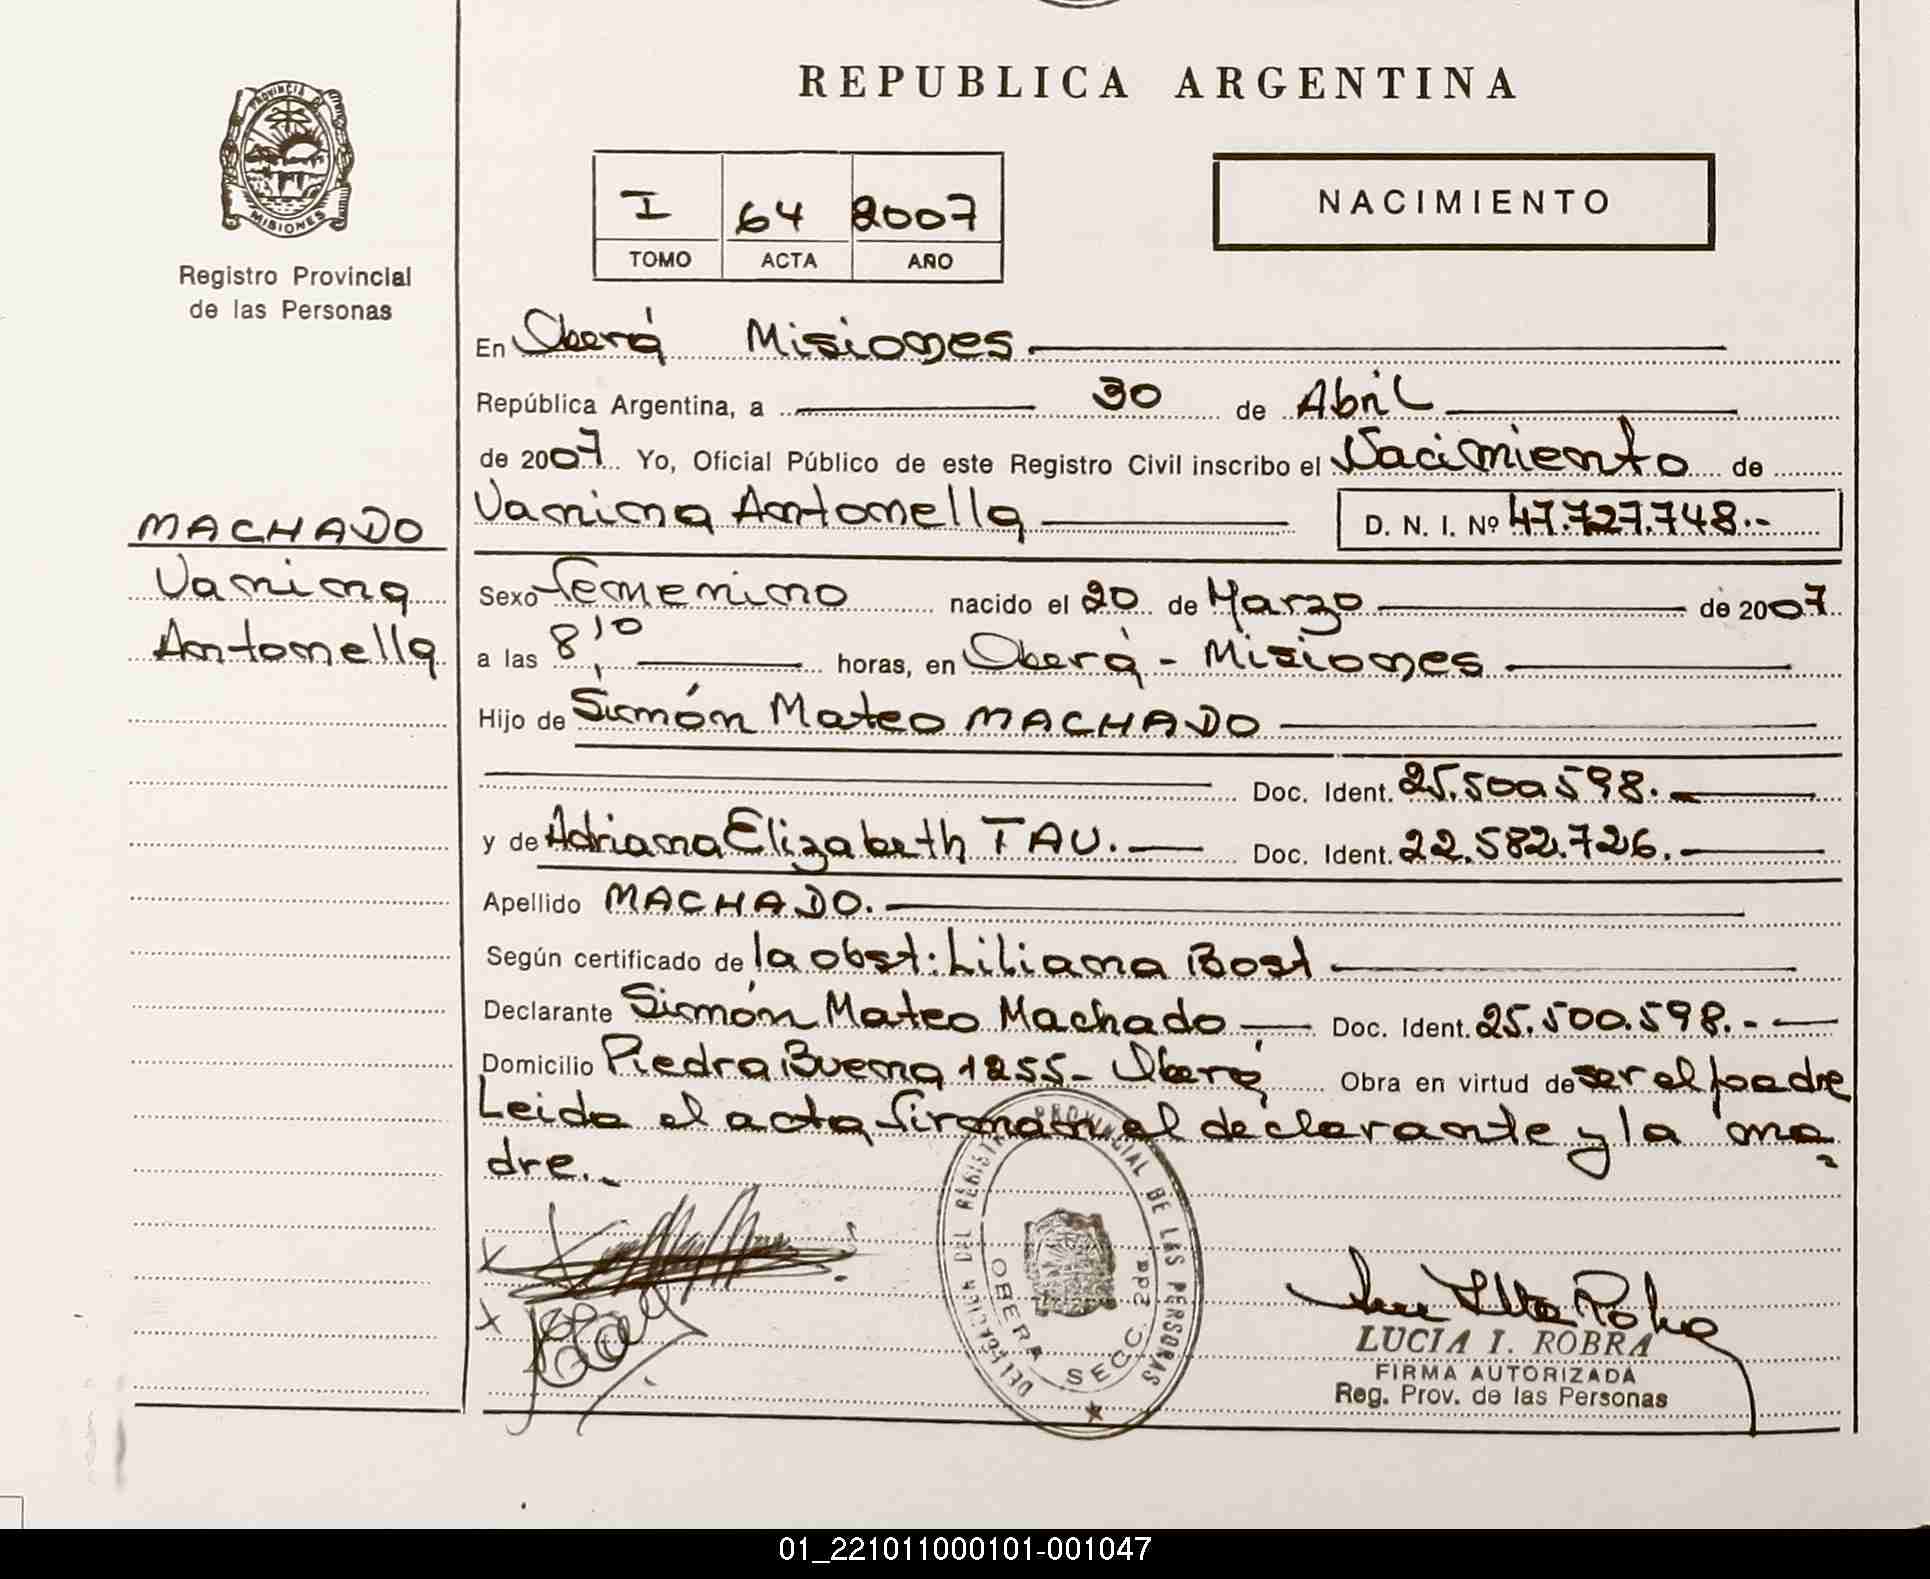 REPUBLICA ARGENTINA
PROVINCIA DE
MISIONES
Registro Provincial
de las Personas
I 64 2007
TOMO ACTA AÑO
NACIMIENTO
En Oberá Misiones
República Argentina, a 30 de Abril
de 2007 Yo, Oficial Público de este Registro Civil inscribo el Nacimiento de
Vanina Antonella D. N. I. Nº 47.727.748.-
MACHADO
Vanina
Antonella
Sexo femenino nacido el 20 de Marzo de 2007
a las 8,10 horas, en Oberá - Misiones
Hijo de Simón Mateo MACHADO
Doc. Ident. 25.500.598.-
y de Adriana Elizabeth TAU.- Doc. Ident. 22.582.726.-
Apellido MACHADO.-
Según certificado de la obst: Liliana Bost
Declarante Simón Mateo Machado Doc. Ident. 25.500.598.-
Domicilio Piedra Buena 1255- Oberá Obra en virtud de ser el padre
Leida el acta firman el declarante y la ma
dre.-
DELEGACION DEL REGISTRO PROVINCIAL DE LAS PERSONAS
OBERA SECC. 2da
LUCIA I. ROBRA
FIRMA AUTORIZADA
Reg. Prov. de las Personas
01_221011000101-001047